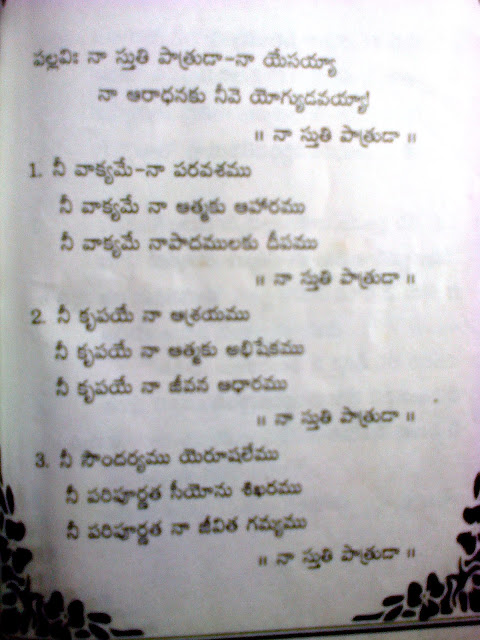 పల్లవిః నా స్తుతి పాత్రుడా-నా యేసయ్యా
నా ఆరాధనకు నీవె యోగ్యుడవయ్యా!
॥ నా స్తుతి పాత్రుడా ॥
1. నీ వాక్యమే-నా పరవశము
నీ వాక్యమే నా ఆత్మకు ఆహారము
నీ వాక్యమే నాపాదములకు దీపము
॥ నా స్తుతి పాత్రుడా ॥
2. నీ కృపయే నా ఆశ్రయము
నీ కృపయే నా ఆత్మకు అభిషేకము
నీ కృపయే నా జీవన ఆధారము
॥ నా స్తుతి పాత్రుడా ॥
3. నీ సౌందర్యము యెరూషలేము
నీ పరిపూర్ణత సీయోను శిఖరము
నీ పరిపూర్ణత నా జీవిత గమ్యము
॥ నా స్తుతి పాత్రుడా ॥